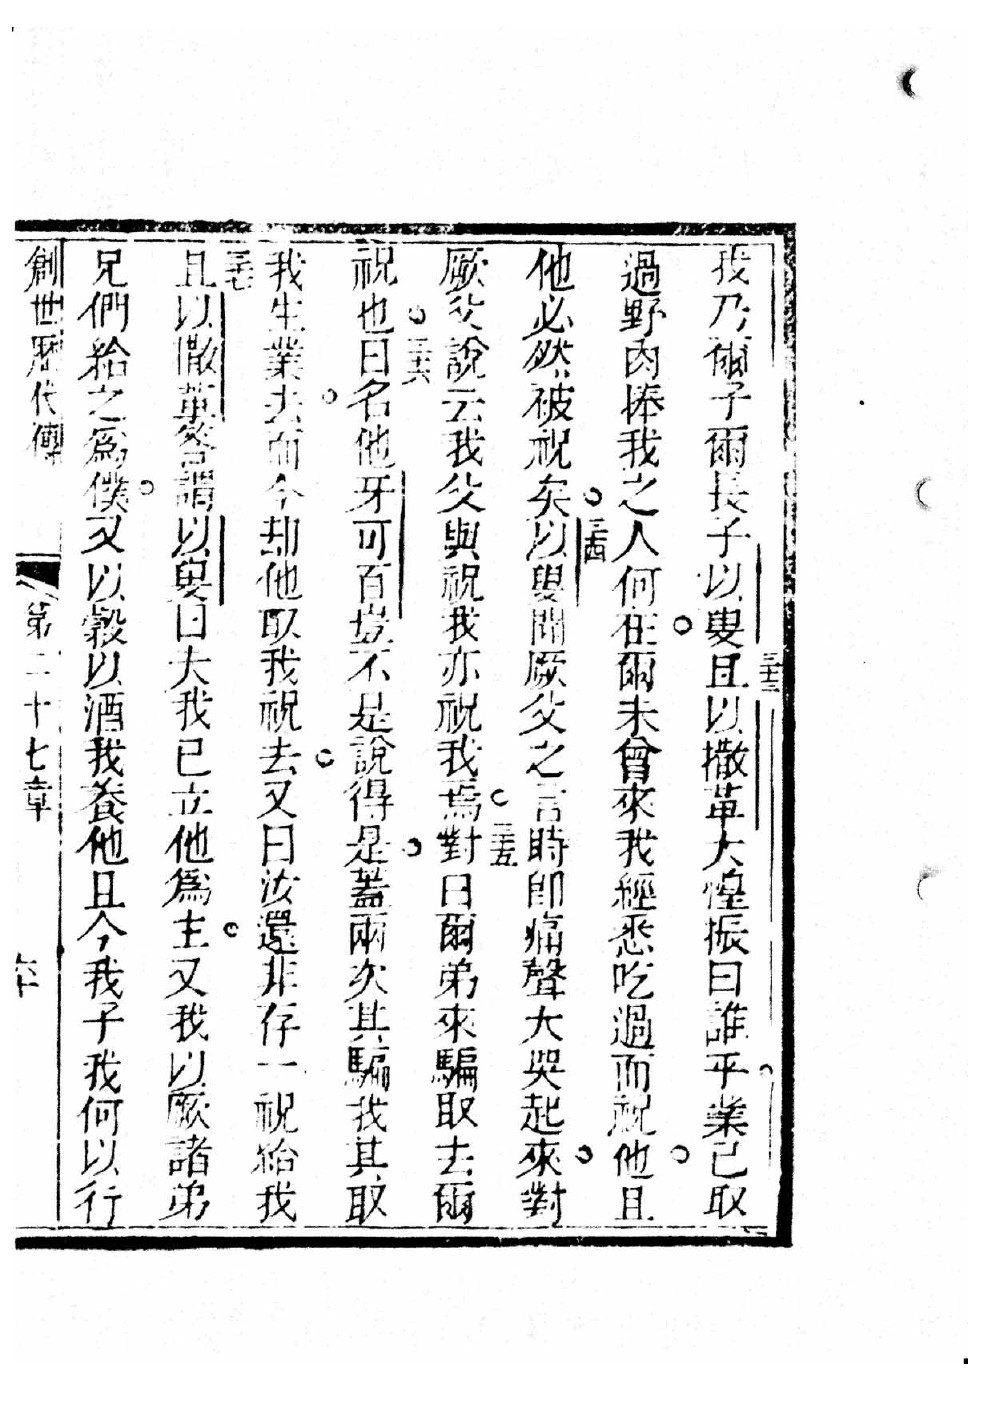 我乃爾子爾長子以叟三十三且以撒革大惶振曰誰乎業已取
過野肉捧我之人何在爾未曾來我經悉吃過而祝他且
他必然被祝矣三十四以叟聞厥父之言時即痛聲大哭起來對
厥父說云我父與祝我亦祝我焉三十五對曰爾弟來騙取去爾
祝也三十六曰名他牙可百豈不是說得是蓋兩次其騙我其取
我生業去而今却他取我祝去又曰汝還非存一祝給我
三十七且以撒革答謂以叟曰夫我已立他爲主又我以厥諸弟
兄們給之爲僕又以穀以酒我養他且今我子我何以行
創世歷代傳
第二十七章